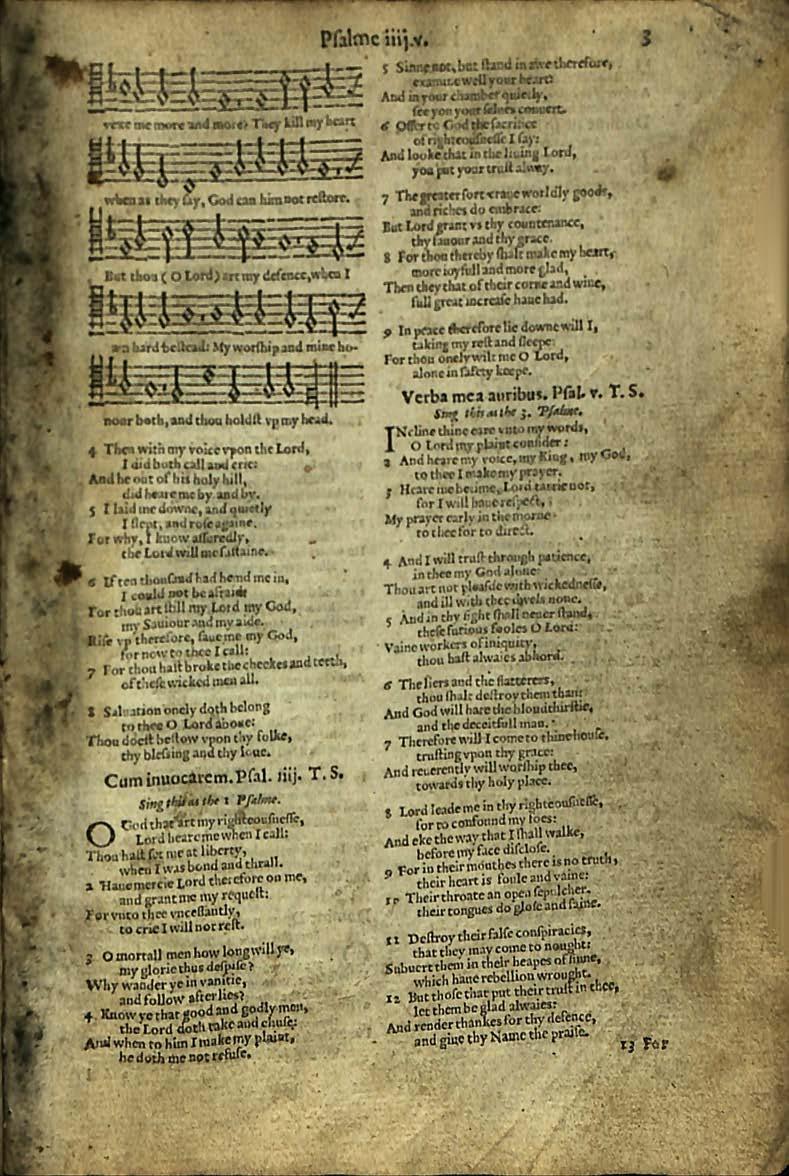 Pſalme iiij.v. 3
vexe me more and more? They kill my heart
when as they ſay, God can him not reſtore.
But thou (O Lord) art my defence, when I
am hard beſtead: My worſhip and mine ho-
nour both, and thou holdſt vp my head.
4 Then with my voice vpon the Lord,
I did both call and crie:
And he out of his holy hill,
did heare me by and by.
5 I laid me downe, and quietly
I ſlept, and roſe againe.
For why, I know aſſuredly,
the Lord will me ſuſtaine.
6 If ten thouſand had hemd me in,
I could not be afraide
For thou art ſtill my Lord my God,
my Sauiour and my aide.
Riſe vp therefore, ſaue me my God,
for now to thee I call:
7 For thou haſt broke the cheekes and teeth,
of theſe wicked men all.
8 Saluation onely doth belong
to thee O Lord aboue:
Thou doeſt beſtow vpon thy folke,
thy bleſsing and thy loue.
Cum inuocarem. Pſal. iiij. T. S.
Sing this as the 1 Pſalme.
O God that art my righteouſneſſe,
Lord heare me when I call:
Thou haſt ſet me at liberty,
when I was bond and thrall.
2 Haue mercie Lord therefore on me,
and grant me my requeſt:
For vnto thee vnceſſantly,
to crie I will not reſt.
3 O mortall men how long will ye,
my glorie thus deſpiſe?
Why wander ye in vanitie,
and follow after lies?
4 Know ye that good and godly men,
the Lord doth take and chuſe:
And when to him I make my plaint,
he doth me not refuſe.
5 Sinne not, but ſtand in awe therefore,
examine well your heart:
And in your chamber quietly,
ſee you your ſelues conuert.
6 Offer to God the ſacrifice
of righteouſneſſe I ſay:
And looke that in the liuing Lord,
you put your truſt alway.
7 The greater ſort craue worldly goods,
and riches do embrace:
But Lord grant vs thy countenance,
thy fauour and thy grace.
8 For thou thereby ſhalt make my heart,
more ioyfull and more glad,
Then they that of their corne and wine,
full great increaſe haue had.
9 In peace therefore lie downe will I,
taking my reſt and ſleepe:
For thou onely wilt me O Lord,
alone in ſafety keepe.
Verba mea auribus. Pſal. v. T. S.
Sing this as the 3. Pſalme.
INcline thine eare vnto my words,
O Lord my plaint conſider:
2 And heare my voice, my King, my God,
to thee I make my prayer.
3 Heare me betime, Lord tarrie not,
for I will haue reſpect,
My prayer early in the morne
to thee for to direct.
4 And I will truſt through patience,
in thee my God alone:
Thou art not pleaſde with wickedneſſe,
and ill with thee dwels none.
5 And in thy ſight ſhall neuer ſtand,
theſe furious fooles O Lord:
Vaine workers of iniquity,
thou haſt alwaies abhord.
6 The liers and the flatterers,
thou ſhalt deſtroy them than:
And God will hate the bloudthirſtie,
and the deceitfull man.
7 Therefore will I come to thine houſe,
truſting vpon thy grace:
And reuerently will worſhip thee,
towards thy holy place.
8 Lord leade me in thy righteouſneſſe,
for to confound my foes:
And eke the way that I ſhall walke,
before my face diſcloſe.
9 For in their mouthes there is no truth,
their heart is foule and vaine:
10 Their throate an open ſepulcher,
their tongues do gloſe and faine.
11 Deſtroy their falſe conſpiracies,
that they may come to nought:
Subuert them in their heapes of ſinne,
which haue rebellion wrought.
12 But thoſe that put their truſt in thee,
let them be glad alwaies:
And render thankes for thy defence,
and giue thy Name the praiſe.
13 For